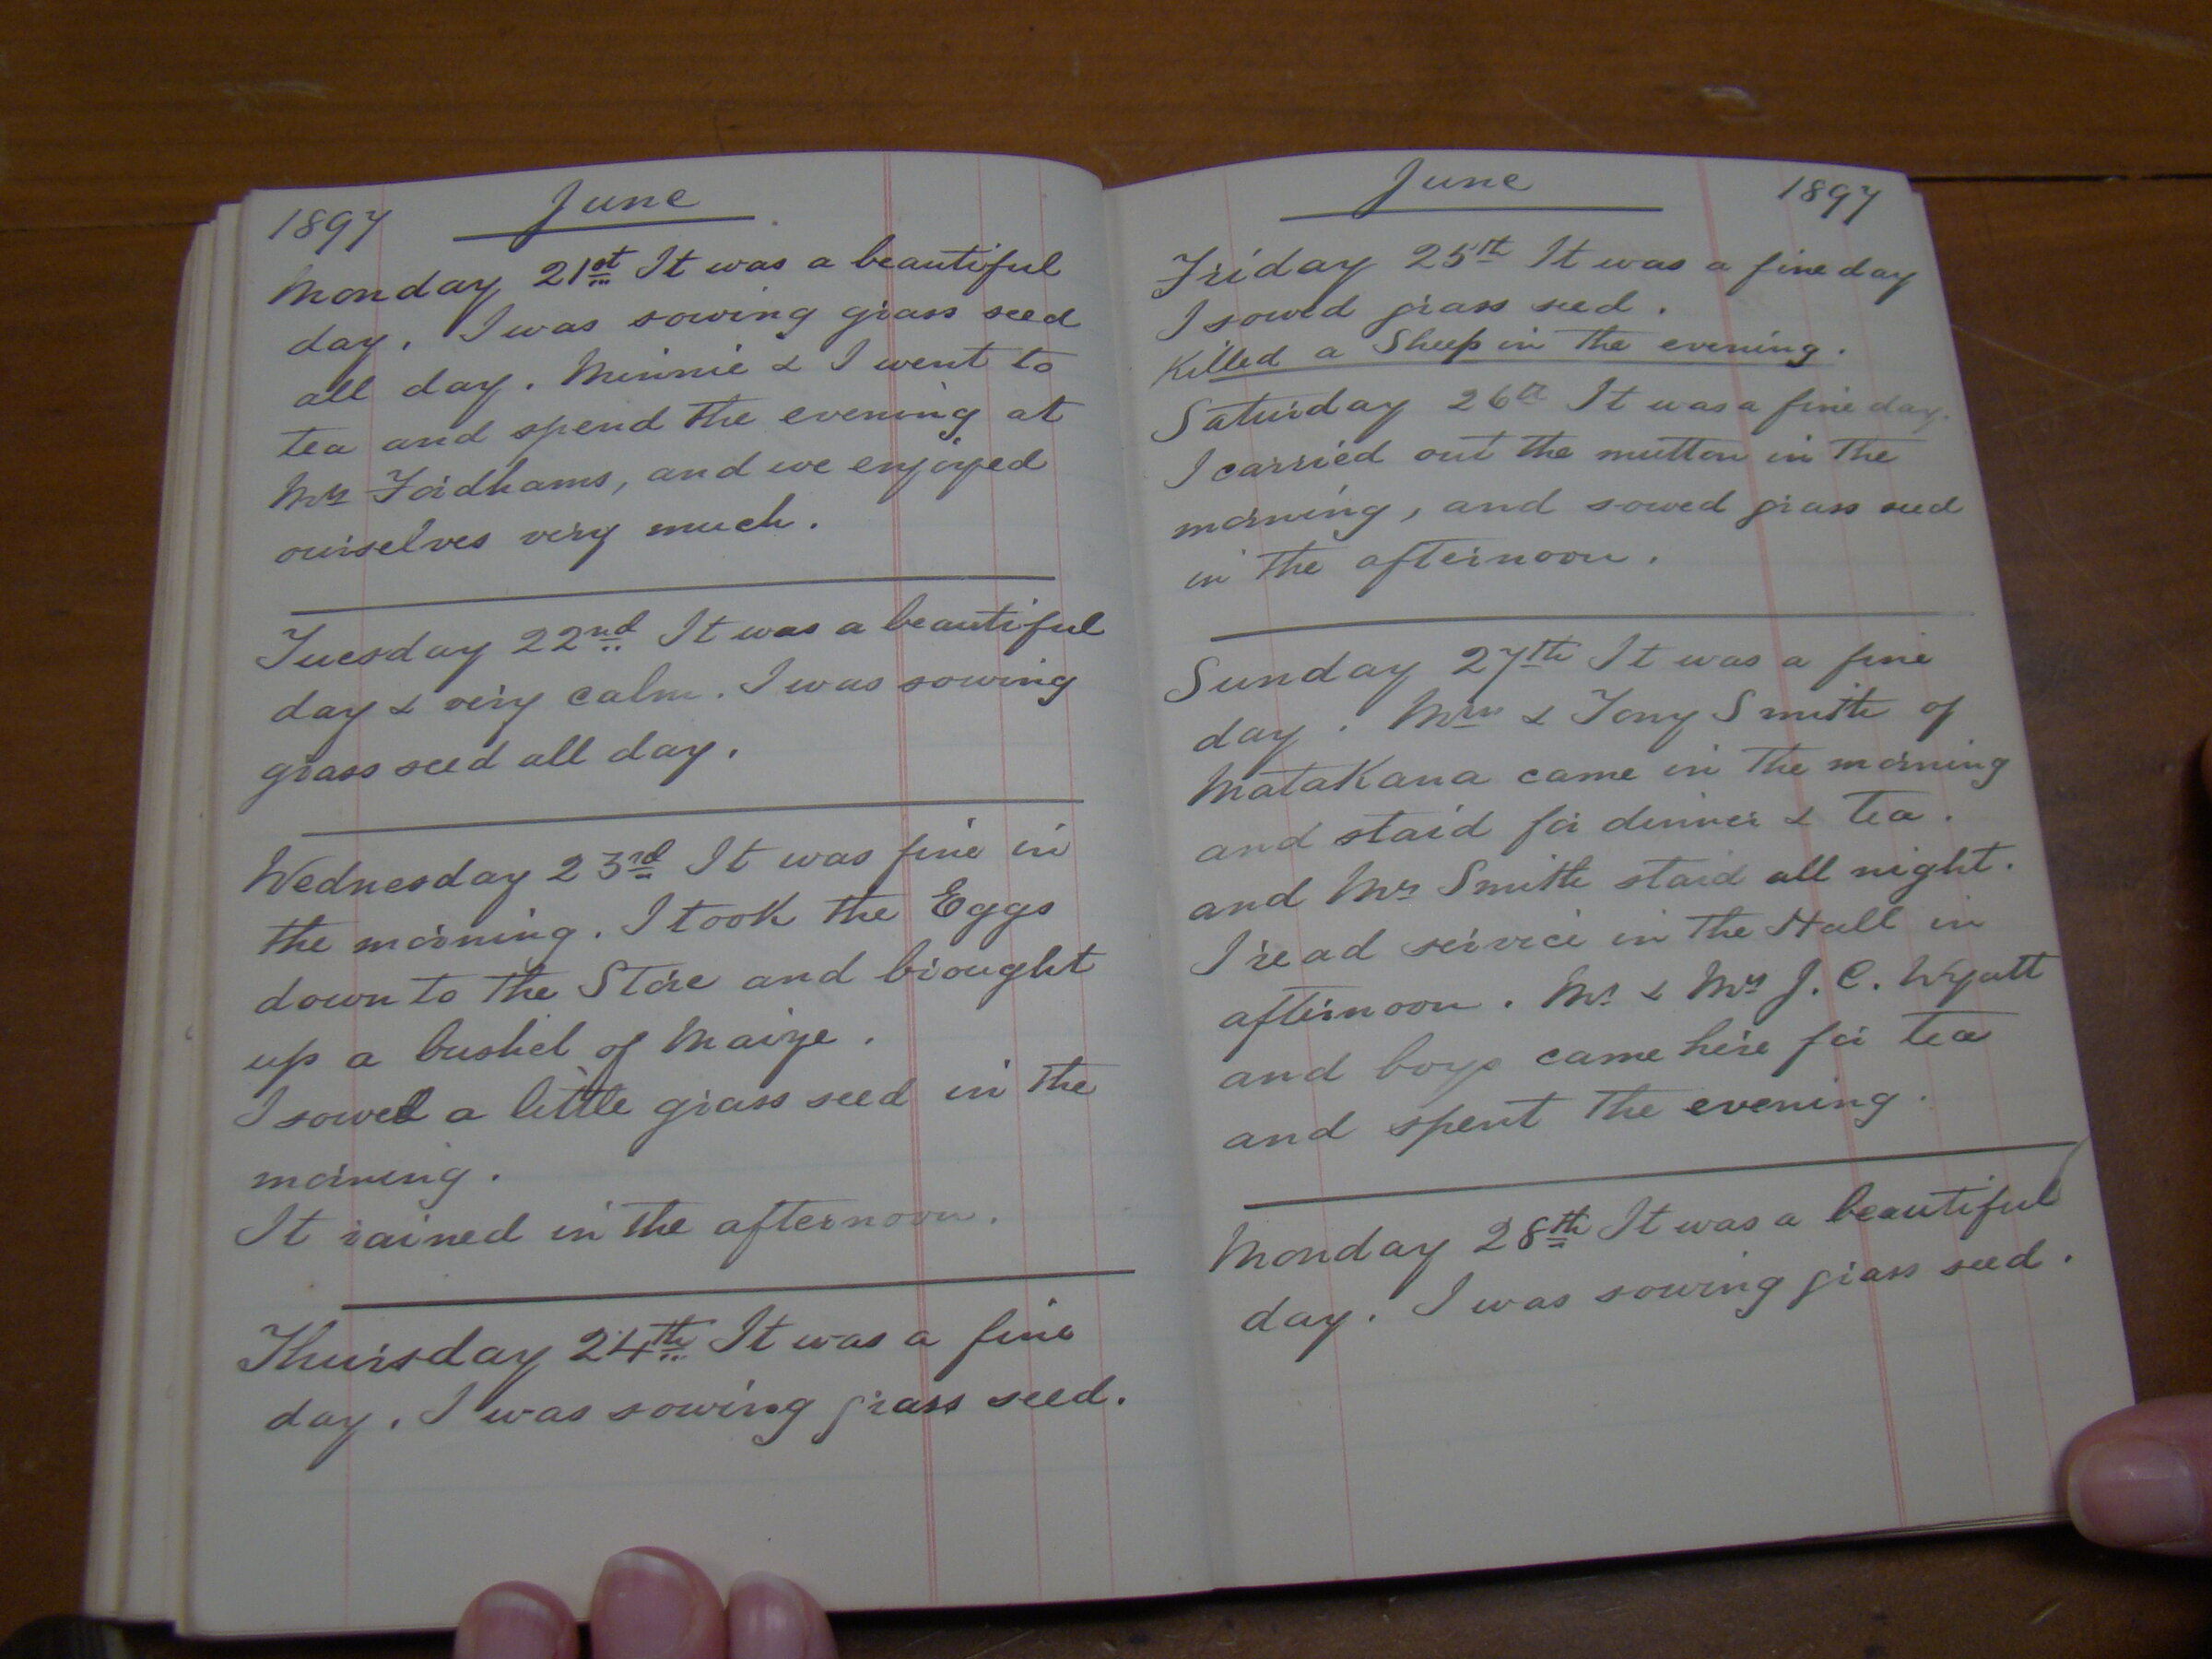 1897 June
Monday 21st It was a beautiful
day. I was sowing grass seed
all day. Minnie & I went to
tea and spend the evening at
Mrs Fordhams, and we enjoyed
ourselves very much.
Tuesday 22nd It was a beautiful
day & very calm. I was sowing
grass seed all day.
Wednesday 23rd It was fine in
the morning. I took the Eggs
down to the Store and brought
up a bushel of Maize.
I sowed a little grass seed in the
morning.
It rained in the afternoon.
Thursday 24th It was a fine
day. I was sowing grass seed.
June 1897
Friday 25th It was a fine day
I sowed grass seed.
Killed a Sheep in the evening.
Saturday 26th It was a fine day.
I carried out the mutton in the
morning, and sowed grass seed
in the afternoon.
Sunday 27th It was a fine
day. Mrs & Tony Smith of
Matakana came in the morning
and staid for dinner & tea.
and Mrs Smith staid all night.
I read service in the Hall in
afternoon. Mr & Mrs J. C. Wyatt
and boys came here for tea
and spent the evening.
Monday 28th It was a beautiful
day. I was sowing grass seed.